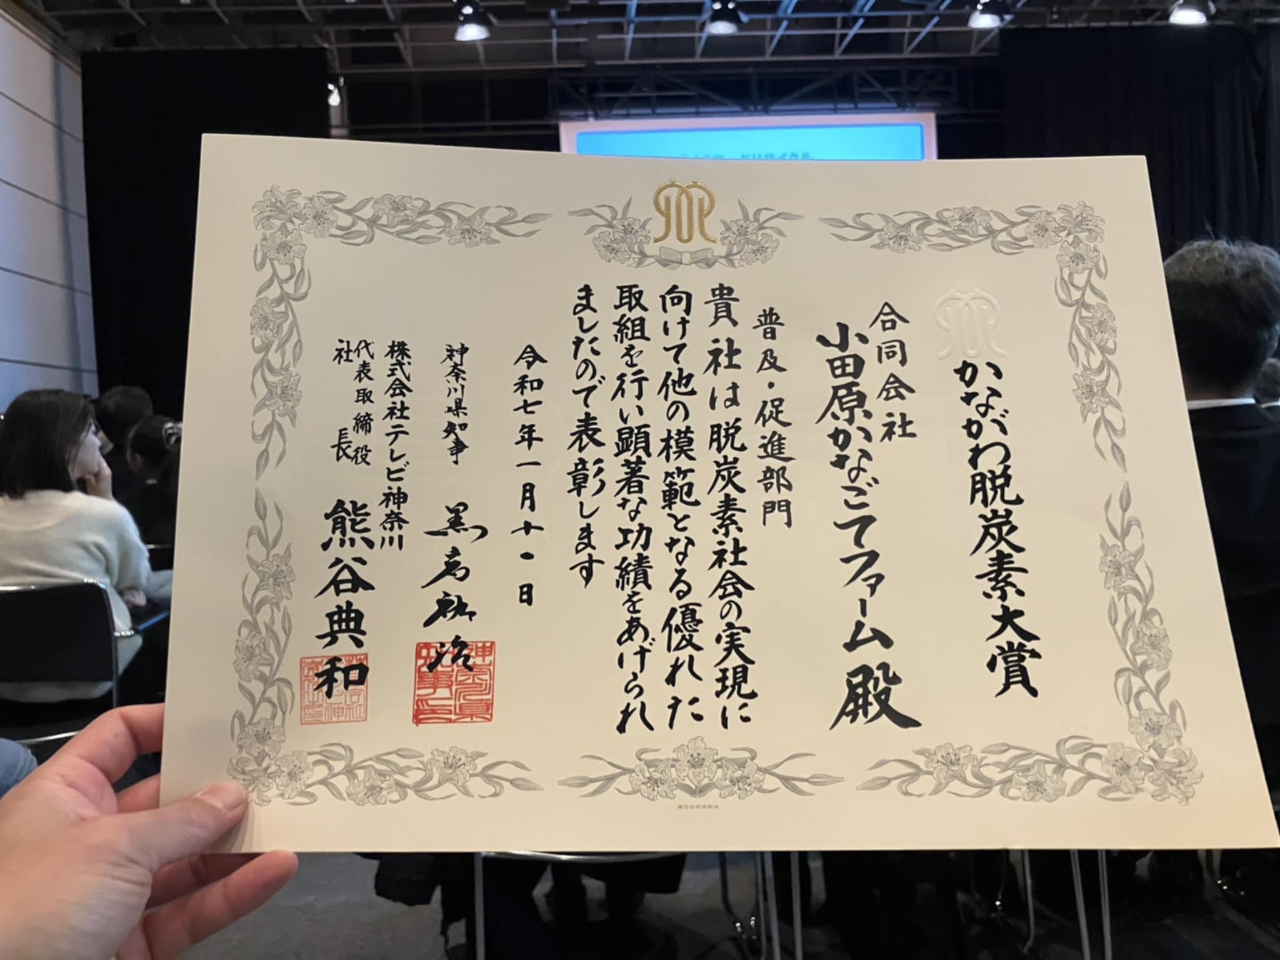 かながわ脱炭素大賞
合同会社
小田原かなごてファーム 殿
普及・促進部門
貴社は脱炭素社会の実現に
向けて他の模範となる優れた
取組を行い顕著な功績をあげられ
ましたので表彰します
令和七年一月十一日
神奈川県知事 黒岩祐治
株式会社テレビ神奈川
代表取締役
社長 熊谷典和